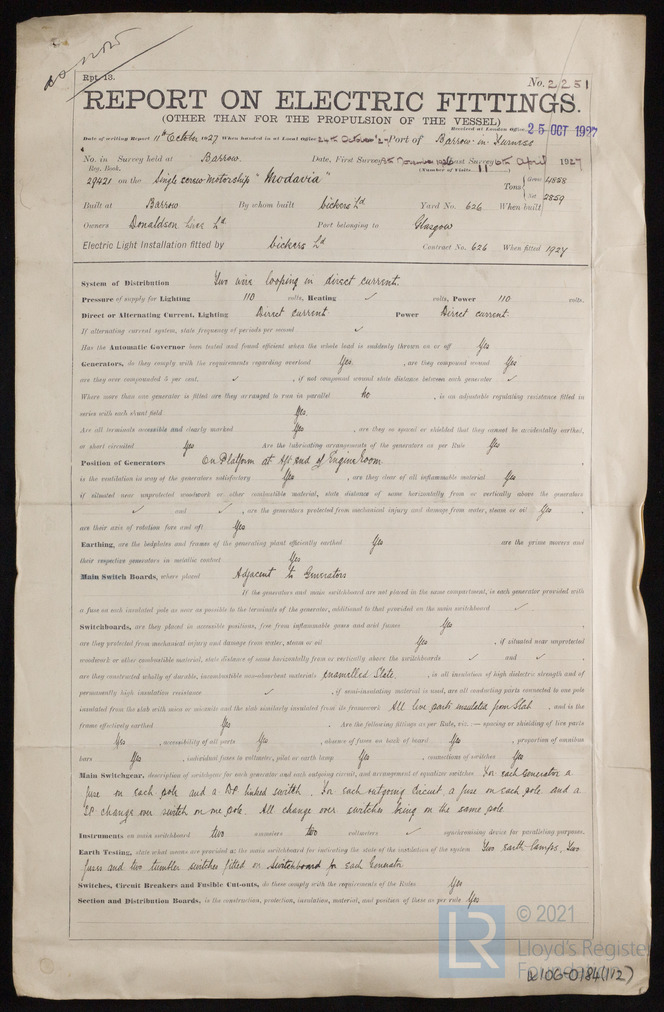 Rpt. 13.
No. 2251
REPORT ON ELECTRIC FITTINGS.
(OTHER THAN FOR THE PROPULSION OF THE VESSEL)
Received at London Office 25 OCT 1927
Date of writing Report 11th October 1927 When handed in at Local Office 24th October '27 Port of Barrow-in-Furness
No. in Survey held at Barrow. Date, First Survey Last Survey April 1927
Reg. Book. (Number of Visits 11)
29421 on the Single screw Motorship "Modavia" Tons Gross 4858
Net 2859
Built at Barrow By whom built Vickers Ld Yard No. 626 When built
Owners Donaldson Line Ld Port belonging to Glasgow
Electric Light Installation fitted by Vickers Ld Contract No. 626 When fitted 1927
System of Distribution Two wire looping in direct current.
Pressure of supply for Lighting 110 volts, Heating ✓ volts, Power 110 volts.
Direct or Alternating Current, Lighting Direct current Power Direct current.
If alternating current system, state frequency of periods per second ✓
Has the Automatic Governor been tested and found efficient when the whole load is suddenly thrown on or off Yes
Generators, do they comply with the requirements regarding overload Yes, are they compound wound Yes
are they over compounded 5 per cent. ✓, if not compound wound state distance between each generator ✓
Where more than one generator is fitted are they arranged to run in parallel No, is an adjustable regulating resistance fitted in
series with each shunt field Yes.
Are all terminals accessible and clearly marked Yes, are they so spaced or shielded that they cannot be accidentally earthed,
or short circuited Yes Are the lubricating arrangements of the generators as per Rule Yes
Position of Generators On Platform at Aft end of Engine Room
is the ventilation in way of the generators satisfactory Yes, are they clear of all inflammable material Yes
if situated near unprotected woodwork or other combustible material, state distance of same horizontally from or vertically above the generators
✓ and ✓, are the generators protected from mechanical injury and damage from water, steam or oil Yes,
are their axis of rotation fore and aft Yes
Earthing, are the bedplates and frames of the generating plant efficiently earthed Yes are the prime movers and
their respective generators in metallic contact Yes
Main Switch Boards, where placed Adjacent to Generators
If the generators and main switchboard are not placed in the same compartment, is each generator provided with
a fuse on each insulated pole as near as possible to the terminals of the generator, additional to that provided on the main switchboard ✓
Switchboards, are they placed in accessible positions, free from inflammable gases and acid fumes Yes,
are they protected from mechanical injury and damage from water, steam or oil Yes, if situated near unprotected
woodwork or other combustible material, state distance of same horizontally from or vertically above the switchboards ✓ and ✓,
are they constructed wholly of durable, incombustible non-absorbent materials Enamelled Slate, is all insulation of high dielectric strength and of
permanently high insulation resistance ✓, if semi-insulating material is used, are all conducting parts connected to one pole
insulated from the slab with mica or micanite and the slab similarly insulated from its framework All live parts insulated from Slab, and is the
frame effectively earthed Yes. Are the following fittings as per Rule, viz.:— spacing or shielding of live parts
Yes, accessibility of all parts Yes, absence of fuses on back of board Yes, proportion of omnibus
bars Yes, individual fuses to voltmeter, pilot or earth lamp Yes, connections of switches Yes
Main Switchgear, description of switchgear for each generator and each outgoing circuit, and arrangement of equalizer switches For each Generator a
fuse on each pole and a DP linked switch. For each outgoing Circuit, a fuse on each pole and a
SP change over switch on one pole. All change over switches being on the same pole
Instruments on main switchboard two ammeters two voltmeters ✓ synchronising device for paralleling purposes.
Earth Testing, state what means are provided at the main switchboard for indicating the state of the insulation of the system Two earth lamps, Two
fuses and two tumbler switches fitted on Switchboard for each Generator
Switches, Circuit Breakers and Fusible Cut-outs, do these comply with the requirements of the Rules Yes
Section and Distribution Boards, is the construction, protection, insulation, material, and position of these as per rule Yes
LR © 2021
Lloyd's Register
Foundation
LR106-0184(1/2)